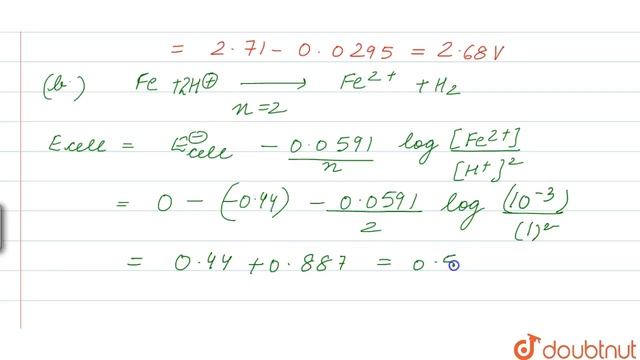 = 2.71 - 0.0295 = 2.68 V
(b.) Fe + 2H⊕ ⟶ Fe²⁺ + H₂
n = 2
Ecell = E⊖cell - 0.0591/n log [Fe²⁺]/[H⁺]²
= 0 - (-0.44) - 0.0591/2 log (10⁻³)/(1)²
= 0.44 + 0.887 = 0.5
doubtnut